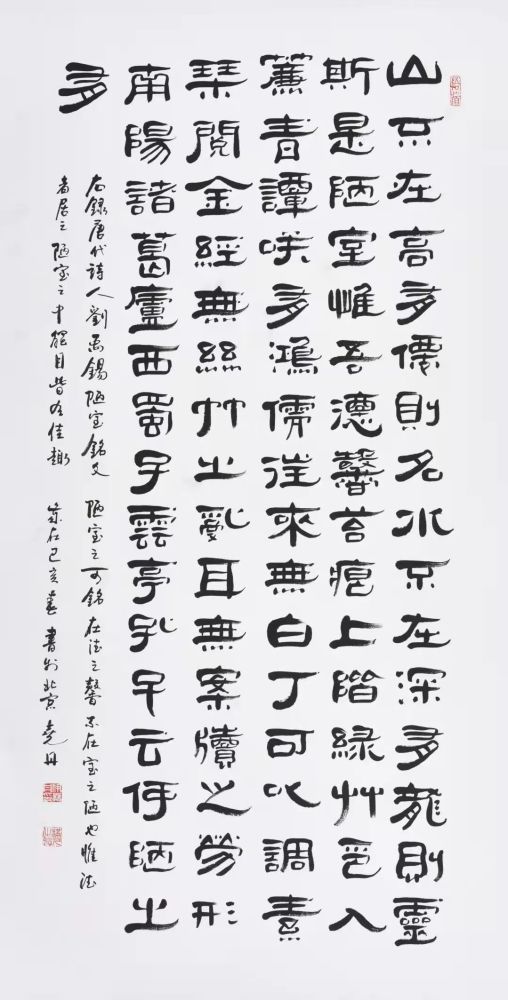 山不在高有僊則名水不在深有龍則靈
斯是陋室惟吾德馨苔痕上階緑艸色入
簾青譚咲有鴻儒往來無白丁可以調素
琴閱金經無絲竹之亂耳無案牘之勞形
南陽諸葛廬西蜀子雲亭孔子云何陋之
有
右錄唐代詩人劉禹錫陋室銘文 陋室之可銘在德之馨不在室之陋也惟德
者居之陋室之中觸目皆有佳趣 歲在己亥春書於北京堯丹